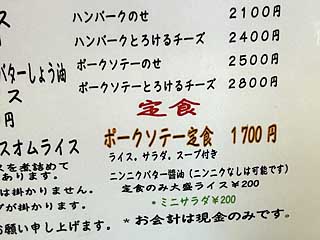 ス
ハンバークのせ 2100円
ハンバークとろけるチーズ 2400円
ポークソテーのせ 2500円
ポークソテーとろけるチーズ 2800円
バターしょう油
ス
円
定食
ポークソテー定食 1700円
ライス。サラダ。スープ付き
ニンニクバター醤油(ニンニクなしは可能です)
定食のみ大盛ライス¥200
*ミニサラダ¥200
*お会計は現金のみです。
スオムライス
スを煮詰めて
は掛かりません。
ブが掛かります。
お願い申し上げます。